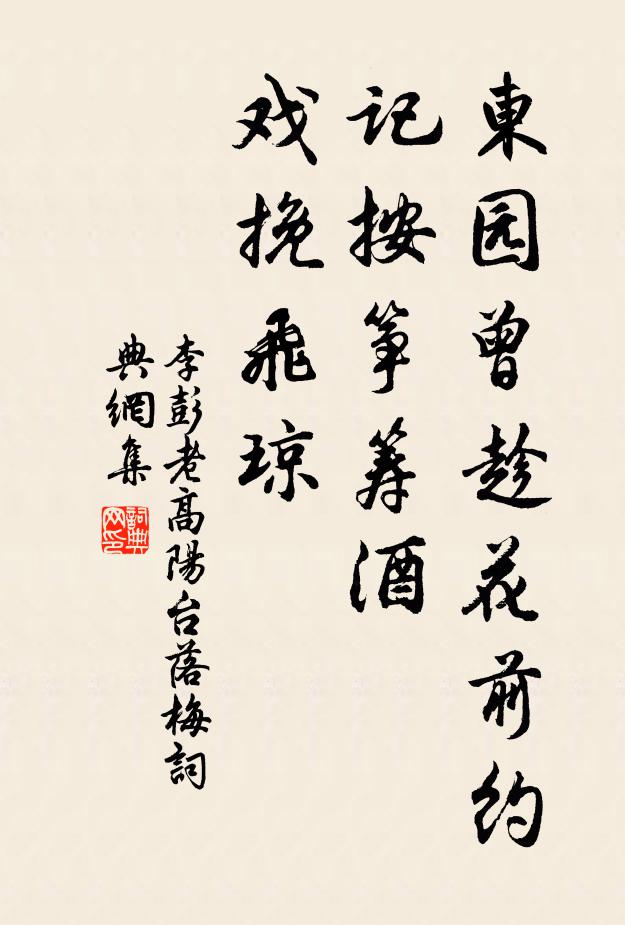 東园曾趁花前约
记按筝筹酒
戏挽飛琼
李彭老高陽台落梅詞
典網集
詞典网印